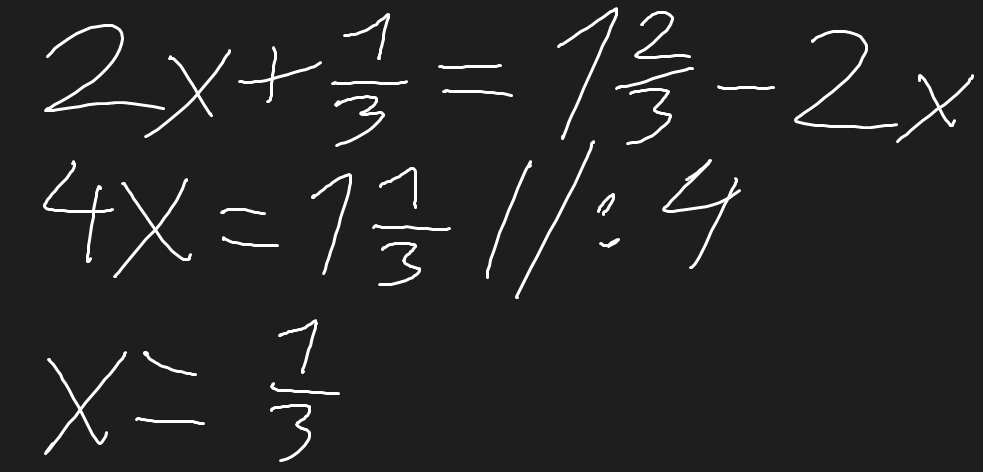 2x + 1/3 = 1 2/3 - 2x
4x = 1 1/3 // : 4
x = 1/3